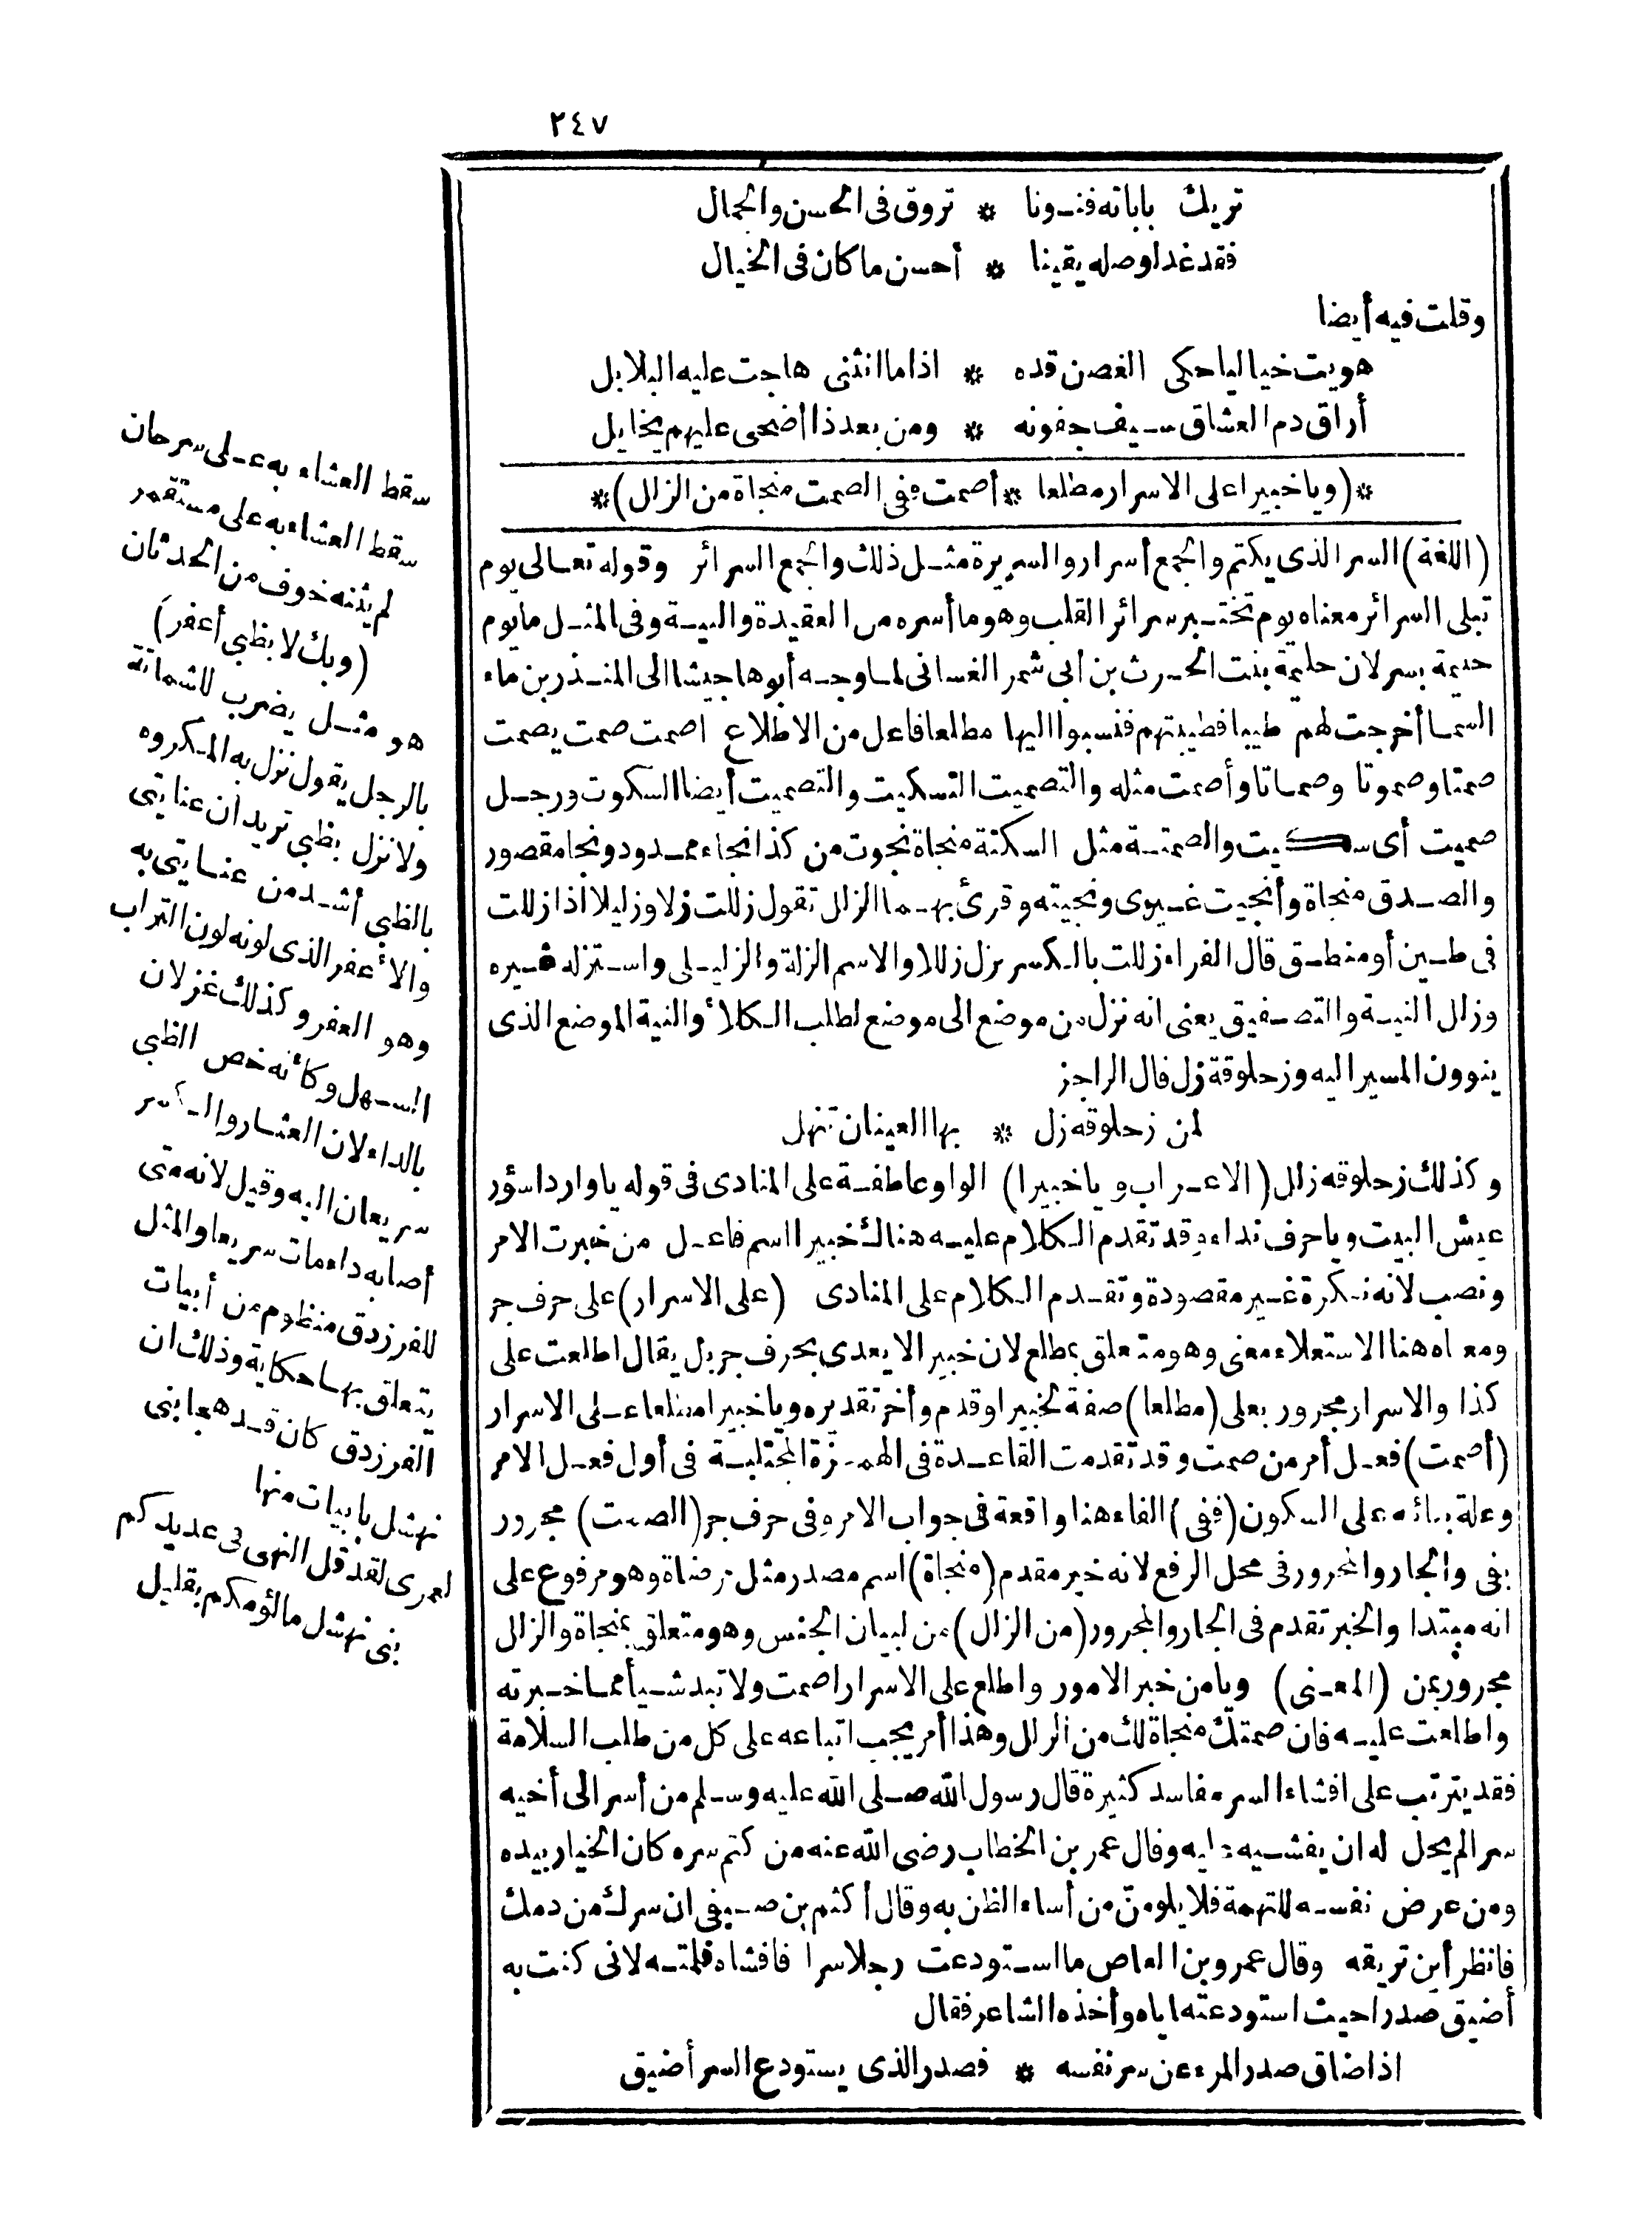 ٢٤٧
تريك باباته فنونا * تروق فى الحسن والجمال
فقد غدا وصله يقينا * أحسن ما كان فى الخيال
وقلت فيه أيضا
هويت خياليا حكى الغصن قده * اذا ما انثنى هاجت عليه البلابل
أراق دم العشاق سيف جفونه * ومن بعد ذا أضحى عليهم يخايل
*(ويا خبيرا على الاسرار مطلعا * أصمت ففى الصمت منجاة من الزلل)*
(اللغة) السر الذى يكتم والجمع أسرار والسريرة مثل ذلك والجمع السرائر وقوله تعالى يوم
تبلى السرائر معناه يوم تختبر سرائر القلب وهو ما أسره من العقيدة والنية وفى المثل ما يوم
حليمة بسر لان حليمة بنت الحرث بن أبى شمر الغسانى لما وجه أبوها جيشا الى المنذر بن ماء
السما أخرجت لهم طيبا فطيبتهم فنسبوا اليها مطلعا فاعل من الاطلاع اصمت صمت يصمت
صمتا وصموتا وصماتا وأصمت مثله والتصميت التسكيت والتصميت أيضا السكوت ورجل
صميت أى سكيت والصمتة مثل السكتة منجاة نجوت من كذا نجاء ممدود ونجا مقصور
والصدق منجاة وأنجيت غيرى ونجيته وقرئ بهما الزلل تقول زللت زلا وزليلا اذا زللت
فى طين أو منطق قال الفراء زللت بالكسر يزل زللا والاسم الزلة والزليلى واستزله غيره
وزال النية والتصفيق يعنى انه نزل من موضع الى موضع لطلب الكلأ والنية الموضع الذى
ينوون المسير اليه وزحلوقة زل قال الراجز
لمن زحلوقه زل * بها العينان تنهل
وكذلك زحلوقه زلل (الاعراب ويا خبيرا) الواو عاطفة على المنادى فى قوله يا واردا سؤر
عيش البيت ويا حرف نداء وقد تقدم الكلام عليه هنالك خبيرا اسم فاعل من خبرت الامر
ونصب لانه نكرة غير مقصودة وتقدم الكلام على المنادى (على الاسرار) على حرف جر
ومعناه هنا الاستعلاء معنى وهو متعلق بمطلع لان خبيرا لا يعدى بحرف جر بل يقال اطلعت على
كذا والاسرار مجرور بعلى (مطلعا) صفة لخبيرا وقدم وأخر تقديره ويا خبيرا مطلعا على الاسرار
(أصمت) فعل أمر من صمت وقد تقدمت القاعدة فى الهمزة المجتلبة فى أول فعل الامر
وعلة بنائه على السكون (ففى) الفاء هنا واقعة فى جواب الامر وفى حرف جر (الصمت) مجرور
بفى والجار والمجرور فى محل الرفع لانه خبر مقدم (منجاة) اسم مصدر مثل مرضاة وهو مرفوع على
انه مبتدا والخبر تقدم فى الجار والمجرور (من الزلل) من لبيان الجنس وهو متعلق بمنجاة والزلل
مجرور بمن (المعنى) ويا من خبر الامور واطلع على الاسرار اصمت ولا تبد شيأ مما خبرته
واطلعت عليه فان صمتك منجاة لك من الزلل وهذا أمر يجب اتباعه على كل من طلب السلامة
فقد يترتب على افشاء السر مفاسد كثيرة قال رسول الله صلى الله عليه وسلم من أسر الى أخيه
سرا لم يحل له ان يفشيه عليه وقال عمر بن الخطاب رضى الله عنه من كتم سره كان الخيار بيده
ومن عرض نفسه للتهمة فلا يلومنّ من أساء الظن به وقال أكثم بن صيفى ان سرك من دمك
فانظر أين تريقه وقال عمرو بن العاص ما استودعت رجلا سرا فافشاه فلمته لانى كنت به
أضيق صدرا حيث استودعته اياه وأخذه الشاعر فقال
اذا ضاق صدر المرء عن سر نفسه * فصدر الذى يستودع السر أضيق
سقط العشاء به على سرحان
سقط العشاء به على مستقمر
لم يثنه خوف من الحدثان
(وبك لا بظبي أعفر)
هو مثل يضرب للشماتة
بالرجل يقول نزل به المكروه
ولا نزل بظبي تريد ان عنايتى
بالظبي أشد من عنايتى به
والأعفر الذى لونه لون التراب
وهو العفر وكذلك غزلان
السهل وكأنه خص الظبي
بالداء لان العثار والكسر
سريعان اليه وقيل لانه متى
أصابه داء مات سريعا والمثل
للفرزدق منظوم من أبيات
يتعلق بها حكاية وذلك ان
الفرزدق كان قد هجا بنى
نهشل بابيات منها
لعمرى لقد قل النهى فى عديدكم
بنى نهشل ما لؤمكم بقليل